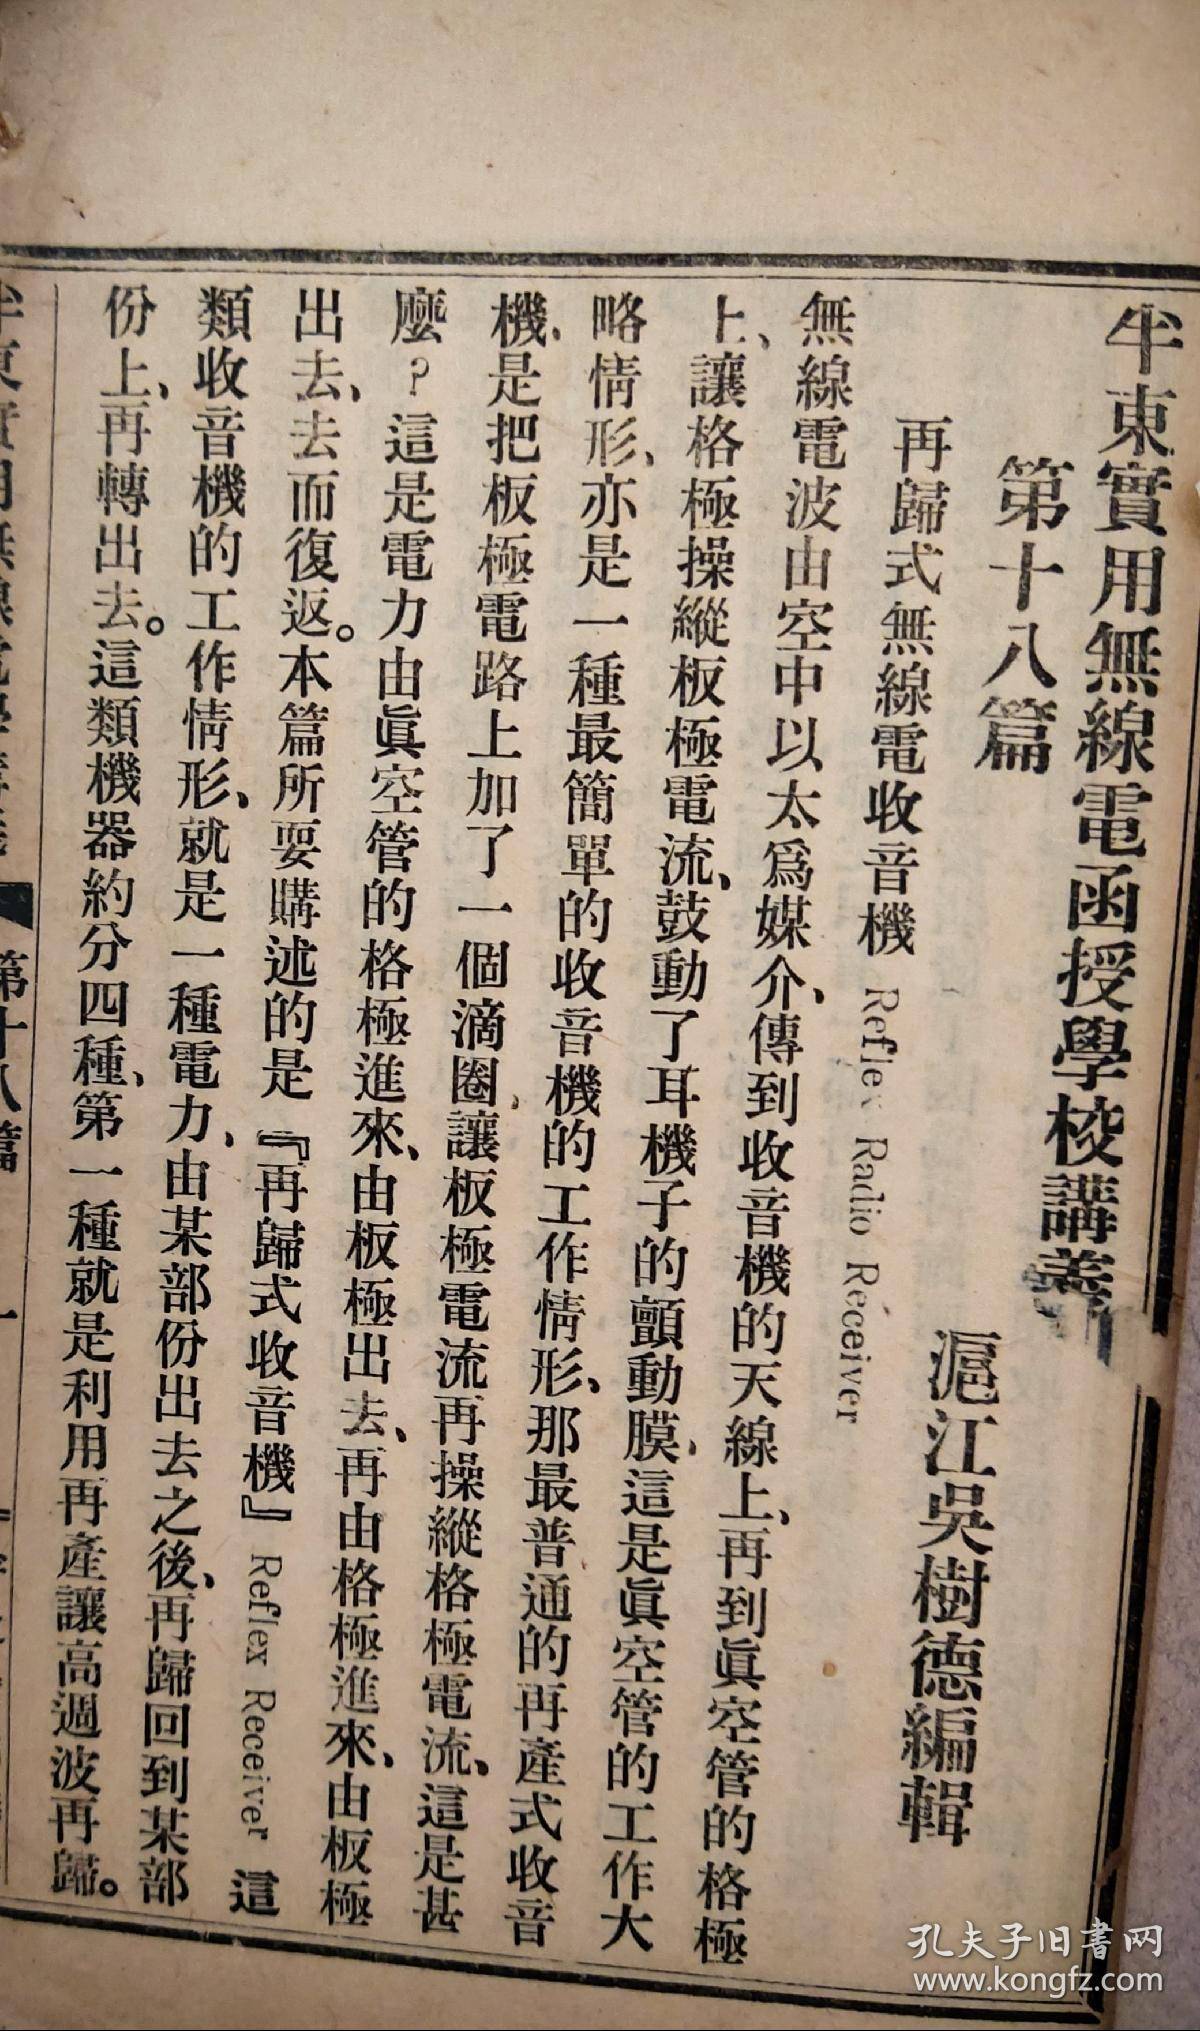 半東實用無線電函授學校講義
第十八篇
滬江吳樹德編輯
再歸式無線電收音機 Reflex Radio Receiver
無線電波由空中以太爲媒介、傳到收音機的天線上、再到眞空管的格極
上、讓格極操縱板極電流、鼓動了耳機子的顫動膜、這是眞空管的工作大
略情形、亦是一種最簡單的收音機的工作情形、那最普通的再產式收音
機、是把板極電路上加了一個滴圈、讓板極電流再操縱格極電流、這是甚
麼?這是電力由眞空管的格極進來、由板極出去、再由格極進來、由板極
出去、去而復返。本篇所要購述的是『再歸式收音機』Reflex Receiver 這
類收音機的工作情形、就是一種電力、由某部份出去之後、再歸回到某部
份上、再轉出去。這類機器約分四種、第一種就是利用再產讓高週波再歸。
第十八篇 一
孔夫子旧书网
www.kongfz.com